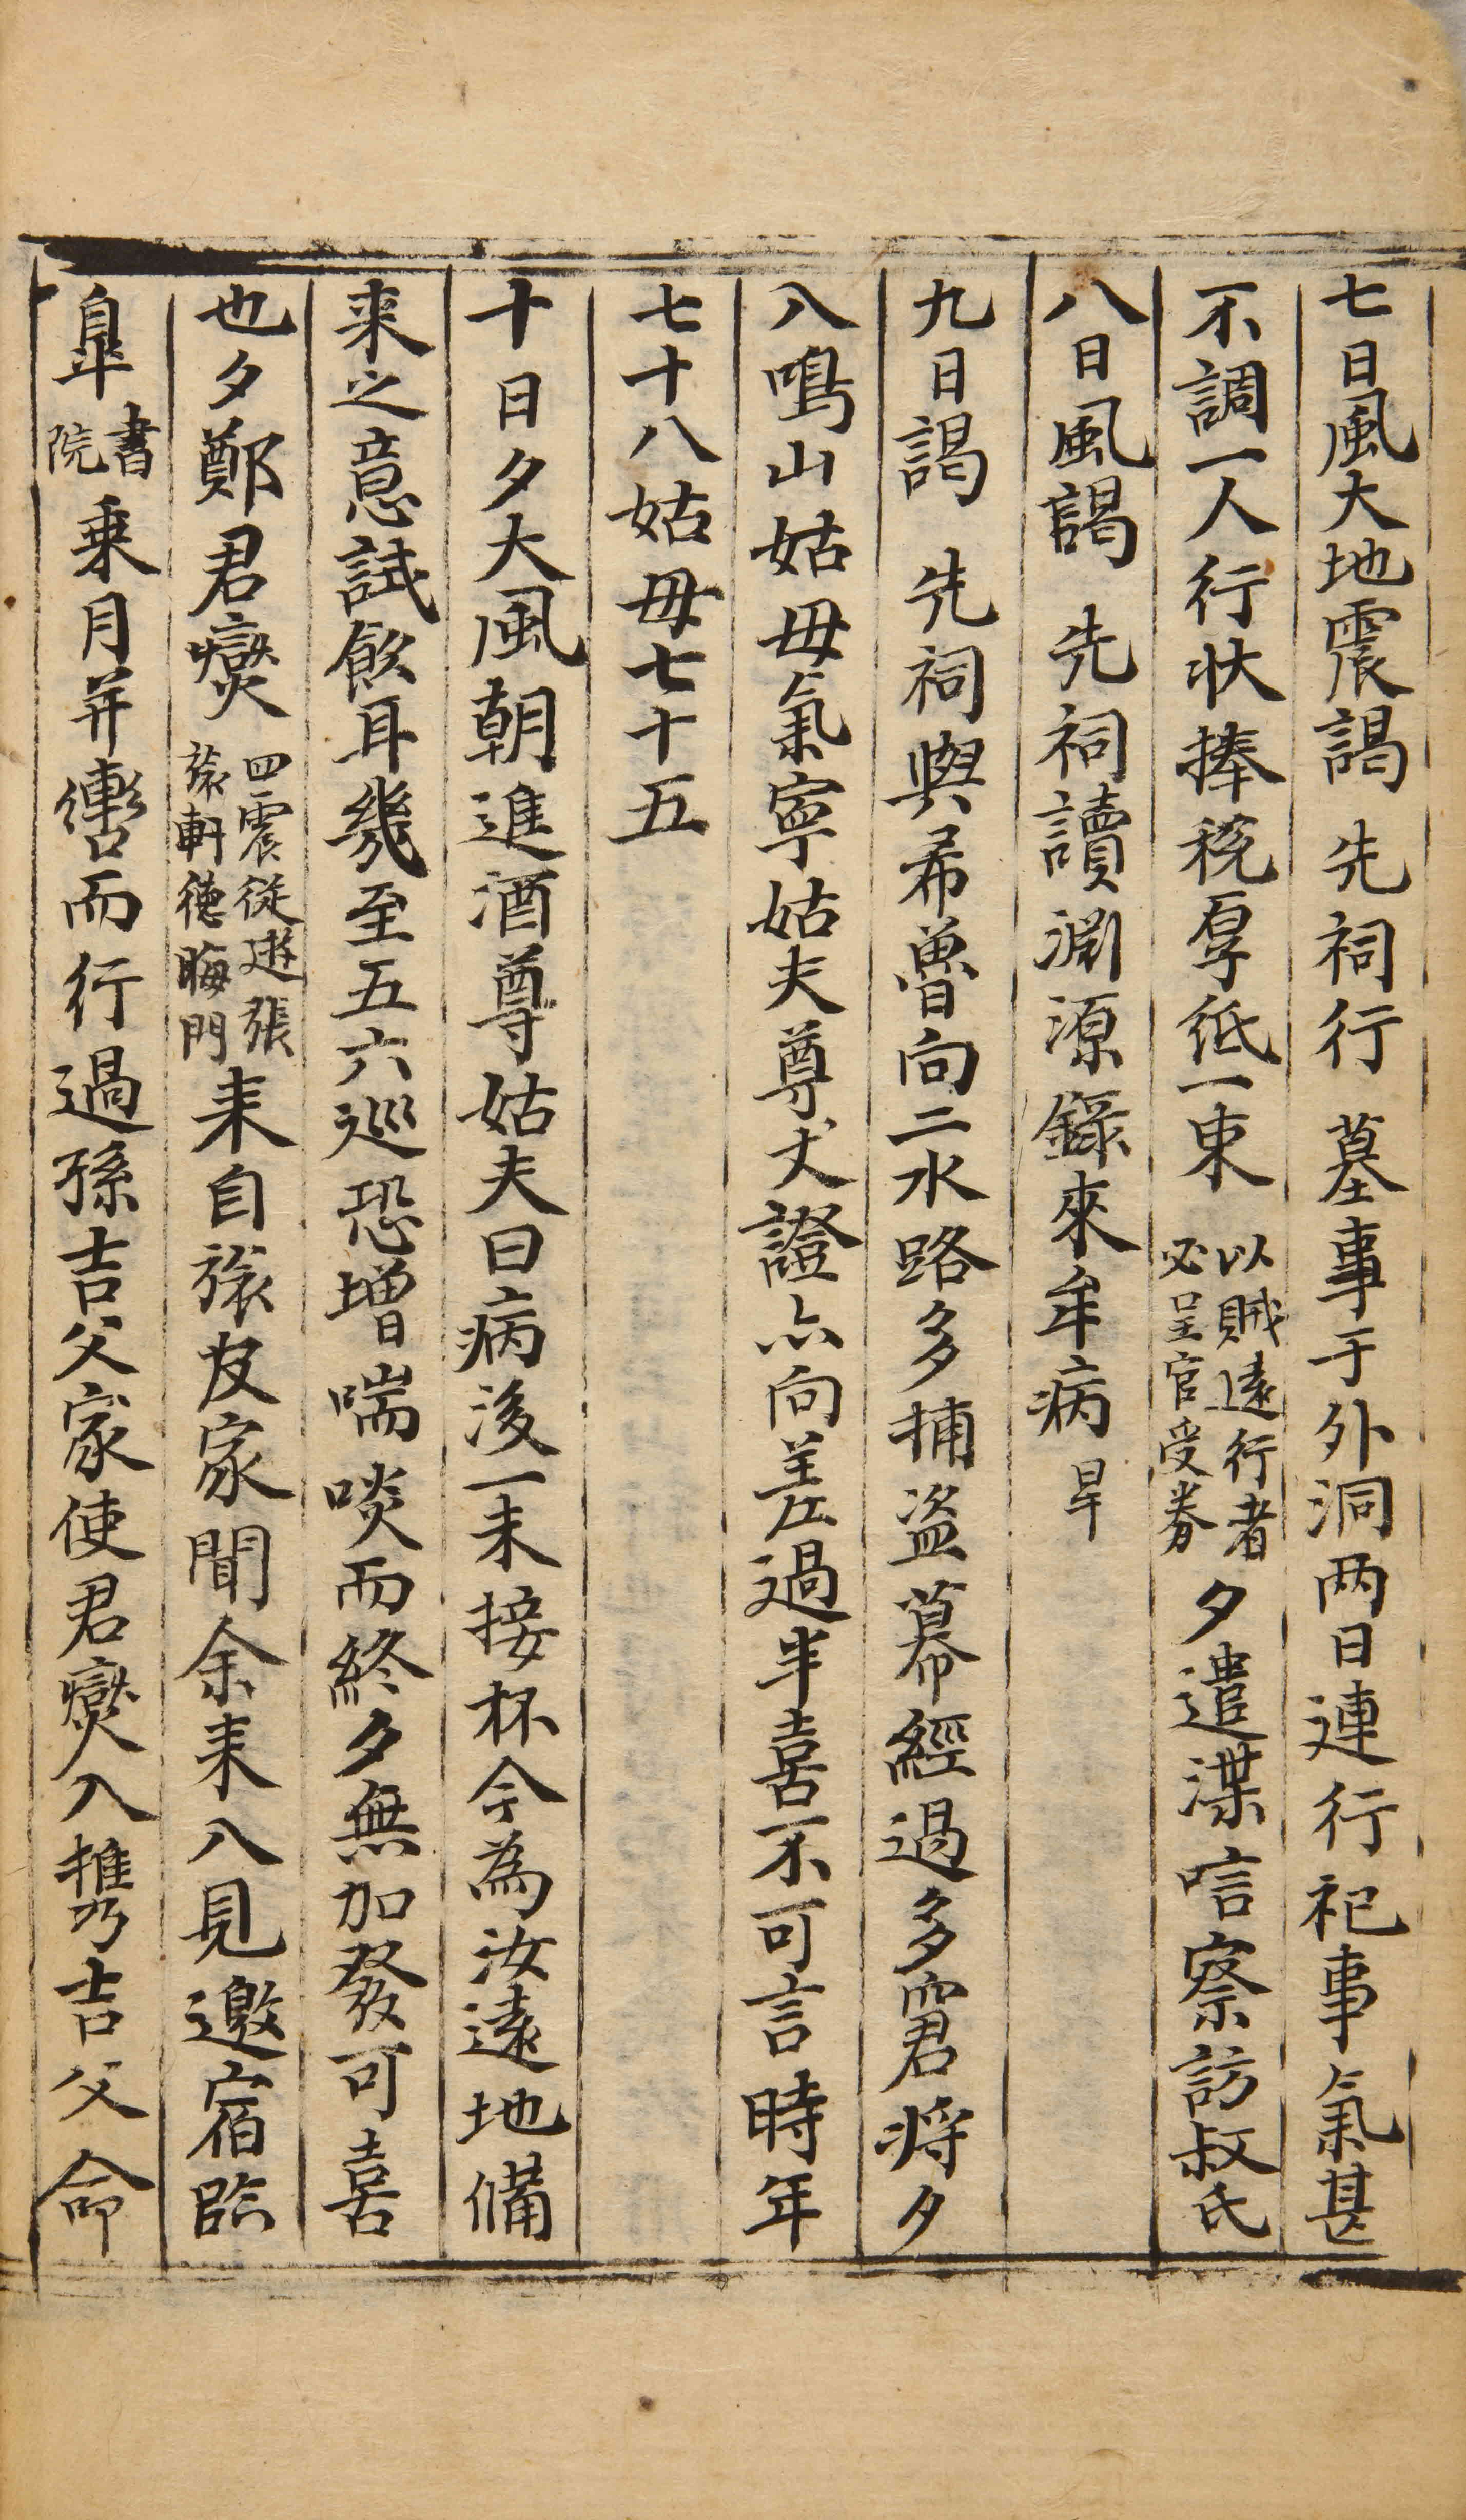 七日風大地震謁 先祠行 墓事于外洞两日連行祀事氣甚
不調一人行状捧稅厚紙一束 以賊遠行者必呈官受券 夕遣渫唁察訪叔氏
八日風謁 先祠讀淵源錄來牟病旱
九日謁 先祠與希魯向二水路多捕盜幕經過多窘将夕
入鳴山姑母氣寧姑夫尊丈證亦向差過半喜不可言時年
七十八姑母七十五
十日夕大風朝進酒尊姑夫曰病後一未接杯今為汝遠地備
来之意試飲耳幾至五六巡恐增喘啖而終夕無加發可喜
也夕鄭君燮 四震從遊張旅軒德晦門 来自旅友家聞余来入見邀宿臨
皐 書院 乗月并轡而行過孫吉父家使君燮入携吉父命